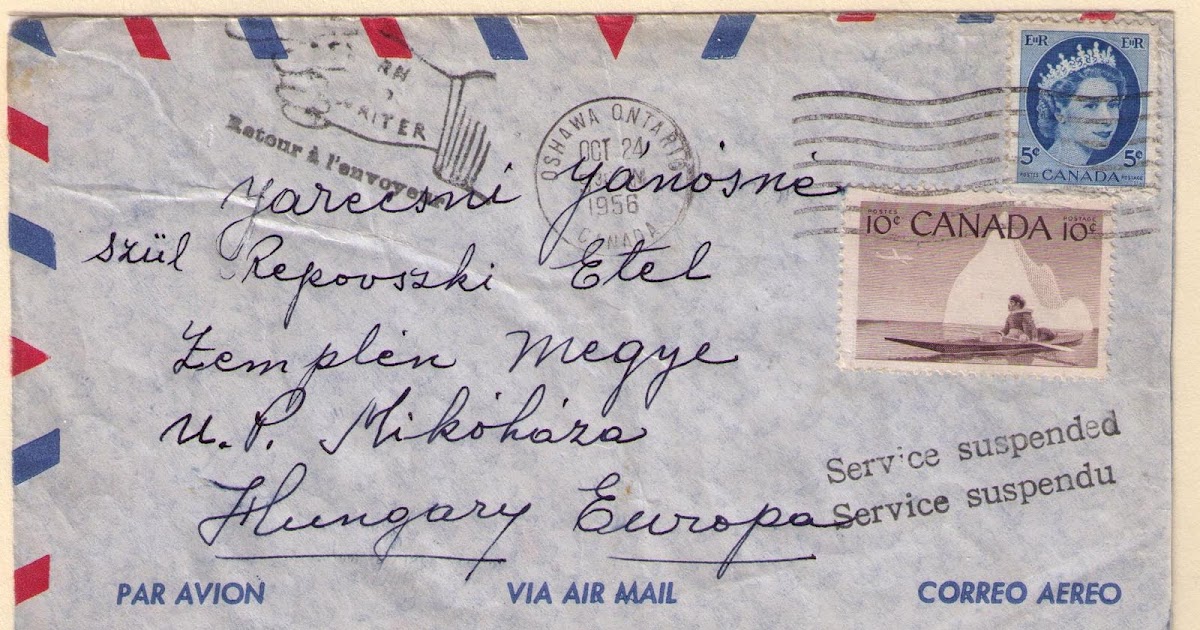 EIIR EIIR
5¢ 5¢
POSTES CANADA POSTAGE
WRITER
Retour à l'envoyeur
OSHAWA ONTARIO
OCT 24
1956
CANADA
POSTES POSTAGE
10¢ CANADA 10¢
Jánosné
szül Repovszki Etel
Zemplén Megye
U. P. Mikóháza
Hungary Europa
Service suspended
Service suspendu
PAR AVION VIA AIR MAIL CORREO AEREO